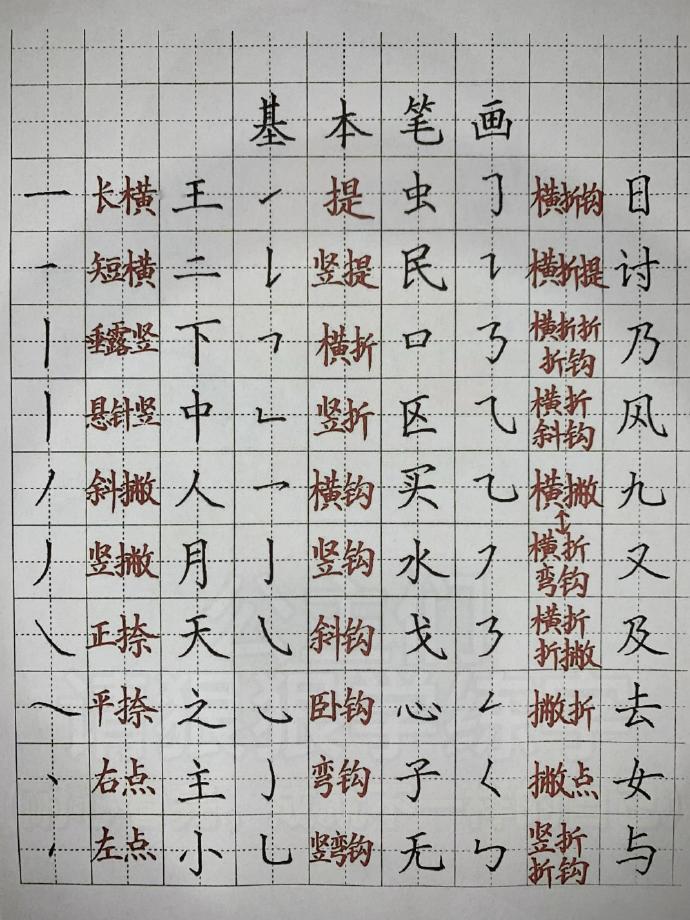 基本笔画
一 长横 王 ㇀ 提 虫 ㇆ 横折钩 日
一 短横 二 ㇙ 竖提 民 ㇊ 横折提 讨
丨 垂露竖 下 ㇕ 横折 口 ㇡ 横折折折钩 乃
丨 悬针竖 中 ㇗ 竖折 区 ⺄ 横折斜钩 风
丿 斜撇 人 ㇖ 横钩 买 ㇈ 横撇 九
丿 竖撇 月 亅 竖钩 水 ㇇ ↕ 横折弯钩 又
㇏ 正捺 天 ㇂ 斜钩 戈 ㇋ 横折折撇 及
㇏ 平捺 之 ㇃ 卧钩 心 ㇜ 撇折 去
丶 右点 主 ㇁ 弯钩 子 ㇛ 撇点 女
丶 左点 小 ㇟ 竖弯钩 无 ㇉ 竖折折钩 与